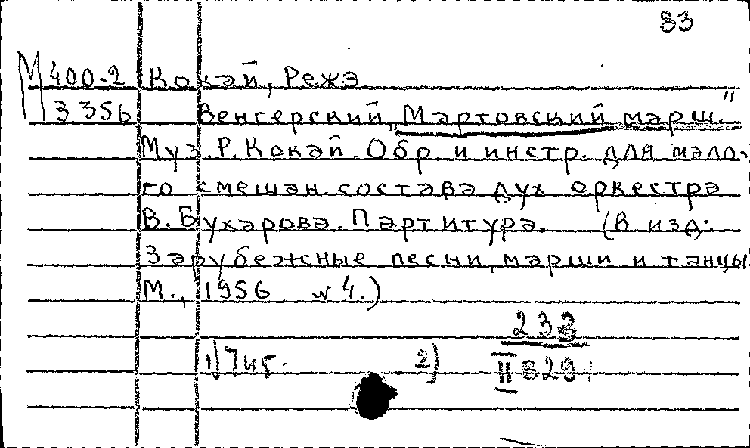 83
М 400-2 Кокай, Режэ
3356 Венгерский „Мартовский марш."
Муз. Р. Кокай. Обр. и инстр. для мало-
го смешан. состава дух. оркестра
В. Бухарова. Партитура. (В изд.:
Зарубежные песни, марши и танцы
М., 1956 № 4.)
233
1) 2) II 829